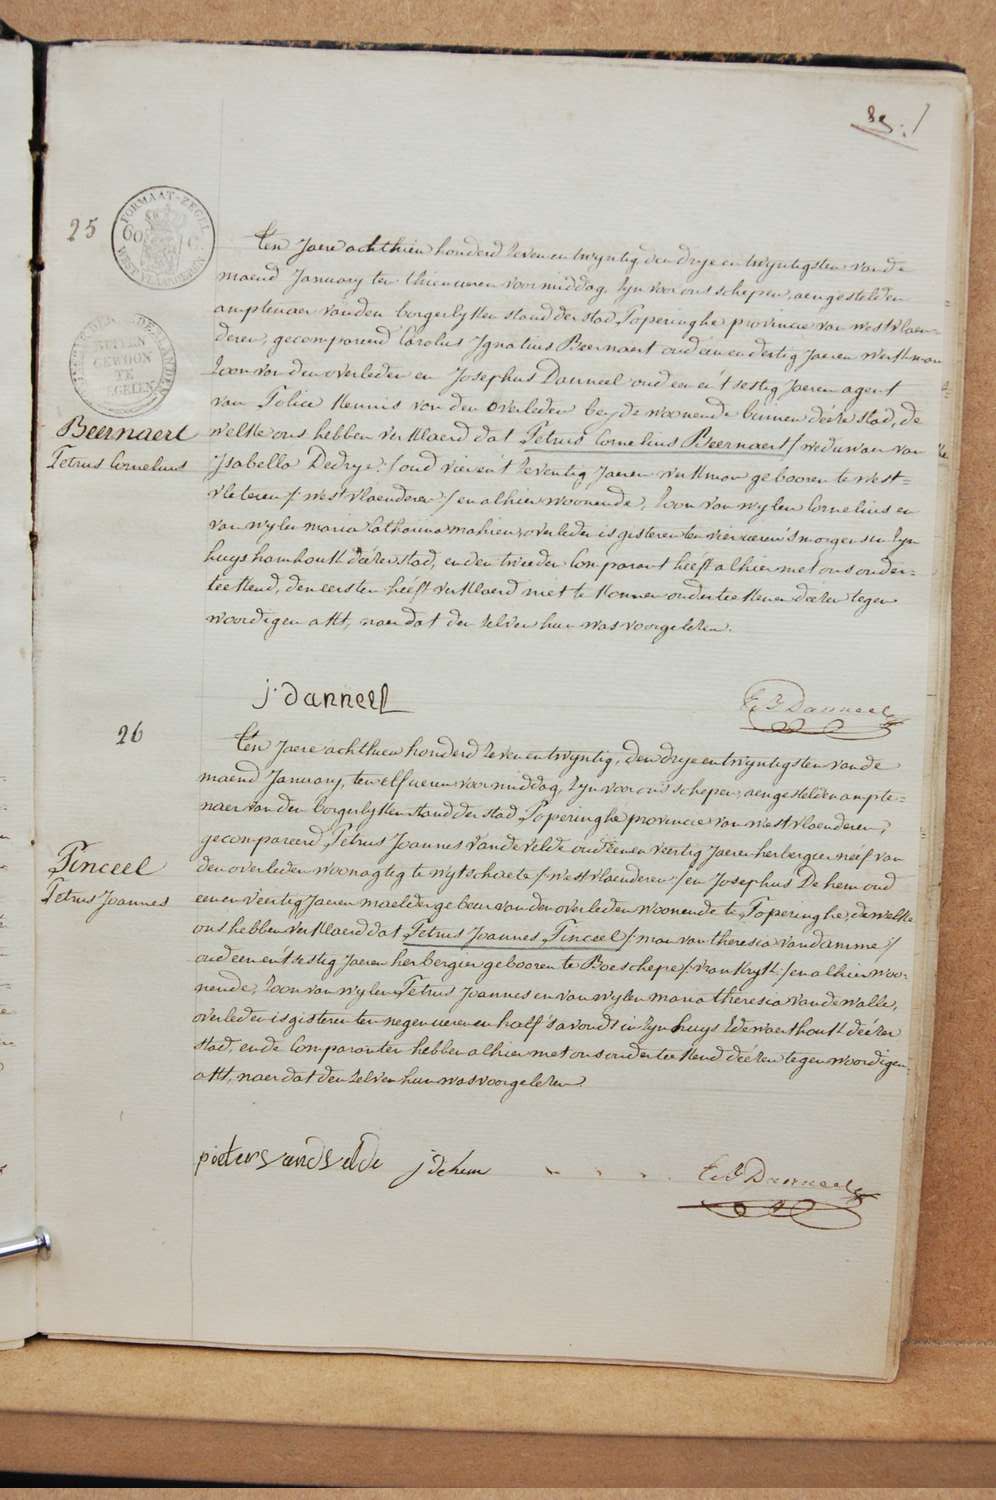 89.
25
FORMAAT-ZEGEL
60 C
WEST VLAANDEREN
Beernaert
Petrus Cornelius
Ten Jaere achthien honderd zeven en twyntig den drye en twyntigsten van de
maend January ten thien ueren voormiddag, zyn voor ons schepen, aengestelden
amptenaer van den borgerlyken stand der stad Poperinghe provincie van west vlaen=
deren, gecompareerd Carolus Ignatius Beernaert oud een en dertig Jaeren werkman
zoon van den overleden en Josephus Danneel oud een en t'sestig Jaeren agent
van Police kennis van den overleden beyde woonende binnen deéze stad, de
welke ons hebben verklaerd dat Petrus Cornelius Beernaert /weduwaer van
Isabella Dedrye:/ oud vier en t'zeventig Jaeren werkman gebooren te west=
vleteren /: westvlaenderen / en alhier woonende, zoon van wylen Cornelius en
van wylen maria Catharina mahieu, overleden is gisteren ten vier ueren s'morgens in zyn
huys hamhoutk deézer stad, en den tweeden Comparant heéft alhier met ons onder=
teekend, den eersten heéft verklaerd niet te konnen onderteekenen deézen tegen
woordigen akt, naer dat den zelven hun was voorgelezen.
j. danneel
E. J. Danneel
26
Pinceel
Petrus Joannes
Ten Jaere achthien honderd zeven en twyntig, den drye en twyntigsten van de
maend January, ten elf ueren voormiddag, zyn voor ons schepen, aengestelden ampte=
naer van den borgerlyken stand der stad Poperinghe provincie van westvlaenderen,
gecompareerd Petrus Joannes Vandevelde oud een en veertig Jaeren herbergier neéf van
den overleden woonagtig te wytschaete /: westvlaenderen / en Josephus Dehem oud
een en veertig Jaeren maelder gebeur van den overleden woonende te Poperinghe, de welke
ons hebben verklaerd dat Petrus Joannes Pinceel /: man van theresia vandamme:/
oud een en t'sestig Jaeren herbergier gebooren te Boeschepe /: vrankryk:/ en alhier woo=
nende, zoon van wylen Petrus Joannes en van wylen maria theresia vandewalle,
overleden is gisteren ten negen ueren en half s'avonds in zyn huys Edewaerthoutk deézer
stad, en de Comparanten hebben alhier met ons onderteekend deézen tegenwoordigen
akt, naer dat den zelven hun was voorgelezen.
pieter vandevelde
j dehem
E. J. Danneel